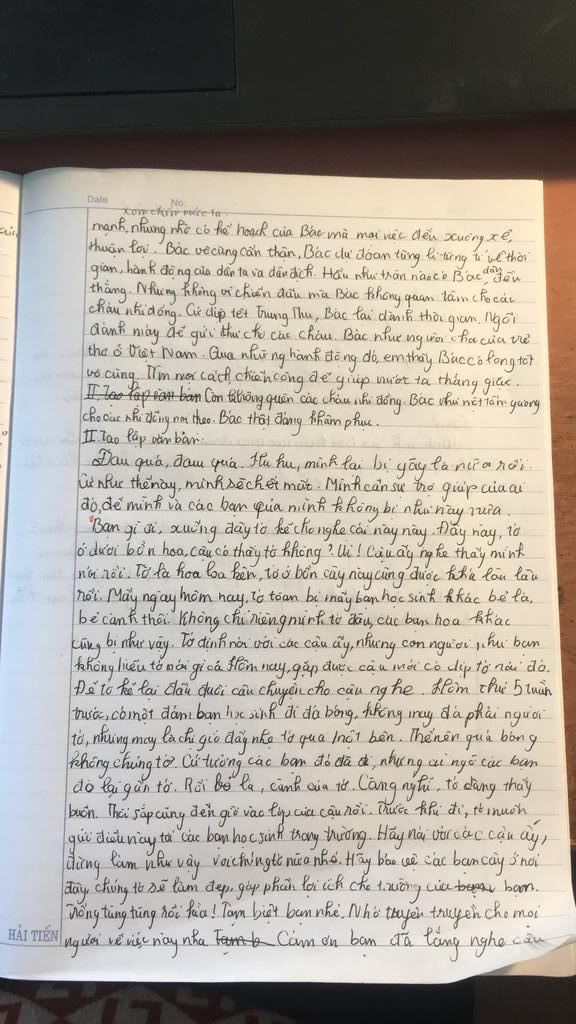 Date No.
xâm chiếm nước ta.
mạnh, nhưng nhờ có kế hoạch của Bác mà mọi việc đều xuông xẻ,
thuận lợi. Bác vô cùng cẩn thận, Bác dự đoán từng li từng tí về thời
gian, hành động của dân ta và dân địch. Hầu như trận nào có Bác dẫn đều
thắng. Nhưng không vì chiến đấu mà Bác không quan tâm cho các
cháu nhi đồng. Cứ dịp tết Trung Thu, Bác lại dành thời gian. Ngồi
đánh máy để gửi thư cho các cháu. Bác như người cha của trẻ
thơ ở Việt Nam. Qua những hành động đó, em thấy Bác có lòng tốt
vô cùng. Tìm mọi cách, chiến công để giúp nước ta thắng giặc.
II. Tạo lập văn bản Còn không quên các cháu nhi đồng. Bác như một tấm gương
cho các nhi đồng noi theo. Bác thật đáng khâm phục.
II. Tạo lập văn bản:
Đau quá, đau quá. Hu hu, mình lại bị gãy lá nữa rồi.
Cứ như thế này, mình sẽ chết mất. Mình cần sự trợ giúp của ai
đó, để mình và các bạn của mình không bị như này nữa.
Bạn gì ơi, xuống đây tớ kể cho nghe cái này này. Đây này, tớ
ở dưới bồn hoa, cậu có thấy tớ không? Ui! Cậu ấy nghe thấy mình
nói rồi. Tớ là hoa loa kèn, tớ ở bồn cây này cũng được khá lâu lâu
rồi. Mấy ngày hôm nay, tớ toàn bị mấy bạn học sinh khác bẻ lá,
bẻ cành thôi. Không chỉ riêng mình tớ đâu, các bạn hoa khác
cũng bị như vậy. Tớ định nói với các cậu ấy, nhưng con người như bạn
không hiểu tớ nói gì cả. Hôm nay, gặp được cậu mới có dịp tớ nói đó.
Để tớ kể lại đầu đuôi câu chuyện cho cậu nghe. Hôm thứ 5 tuần
trước, có một đám bạn học sinh đi đá bóng, không may đá phải người
tớ, nhưng may là chị gió đẩy nhẹ tớ qua một bên. Thế nên quả bóng
không chúng tớ. Cứ tưởng các bạn đó đã đi, nhưng ai ngờ các bạn
đó lại gần tớ. Rồi bẻ lá, cành của tớ. Càng nghĩ, tớ càng thấy
buồn. Thôi sắp cũng đến giờ vào lớp của cậu rồi. Trước khi đi, tớ muốn
gửi điều này tới các bạn học sinh trong trường. Hãy nói với các cậu ấy,
đừng làm như vậy với chúng tớ nữa nhé. Hãy bảo vệ các bạn cây ở nơi
đây, chúng tớ sẽ làm đẹp, góp phần lợi ích cho trường của bạn bạn.
Trống tùng tùng rồi kìa! Tạm biệt bạn nhé. Nhớ truyên truyền cho mọi
người về việc này nha Tạm b Cảm ơn bạn đã lắng nghe câu
HẢI TIẾN